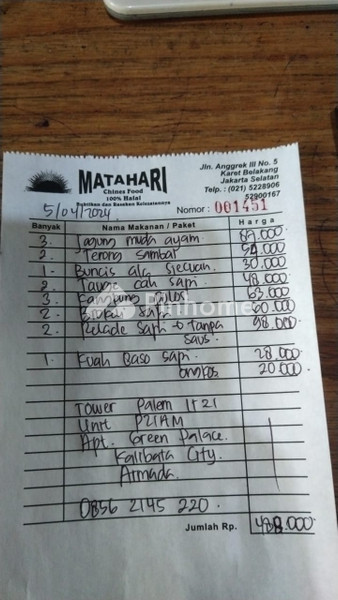 MATAHARI
Chines Food
100% Halal
Buktikan dan Rasakan Kelezatannya
Jln. Anggrek III No. 5
Karet Belakang
Jakarta Selatan
Telp. : (021) 5228906
52900167
5/04/2024
Nomor : 001451
Banyak Nama Makanan / Paket Harga
3. Jagung muda ayam
2. Terong sambal
1. Buncis ala Siecuan. 30.000
2. Tauge cah sapi 48.000
3. 63.000
2. 60.000
2. Rolade Sapi tanpa 98.000
saus.
1. Kuah Baso sapi. 28.000
ongkos 20.000
Tower Palem lt 21
Unit P21AM
Apt. Green Palace.
Kalibata City.
Armada.
0856 2145 220.
Jumlah Rp.
Pinhome